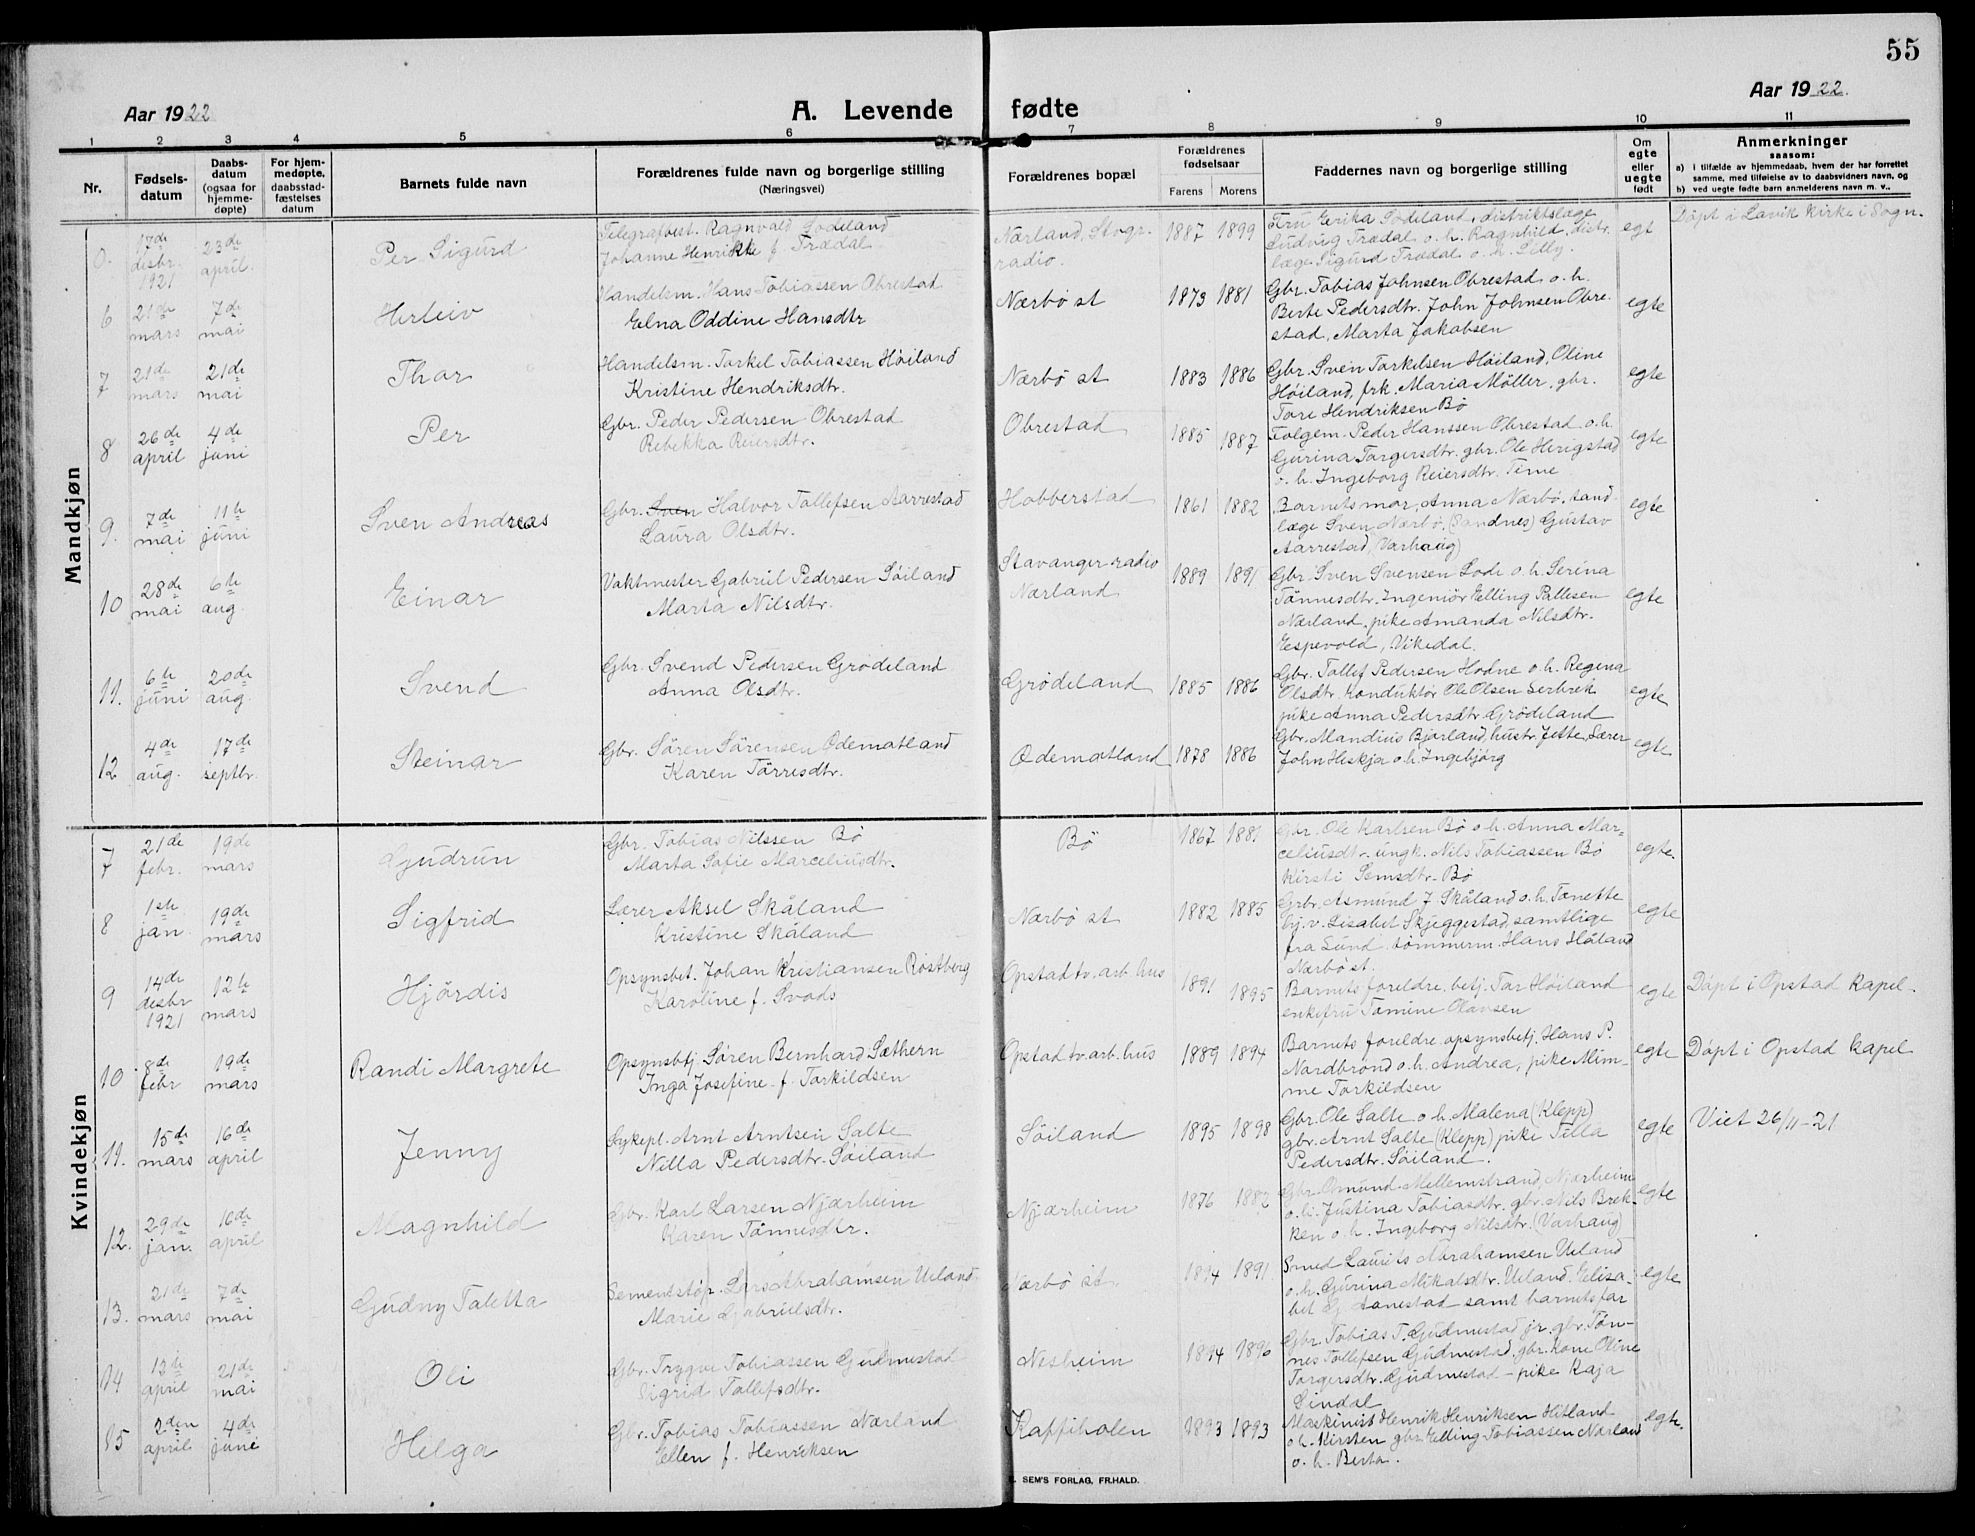 55
Aar 1922
A. Levende fødte
Aar 1922.
1 2 3 4 5 6 7 8 9 10 11
Nr.
Fødsels-
datum
Daabs-
datum
(ogsaa for
hjemme-
døpte)
For hjem-
medøpte,
daabsstad-
fæstelses
datum
Barnets fulde navn
Forældrenes fulde navn og borgerlige stilling
(Næringsvei)
Forældrenes bopæl
Forældrenes
fødselsaar
Farens Morens
Faddernes navn og borgerlige stilling
Om
egte
eller
uegte
født
Anmerkninger
saasom:
a) i tilfælde av hjemmedaab, hvem der har forrettet
samme, med tilføielse av to daabsvidners navn, og
b) ved uegte fødte barn anmelderens navn m. v..
Mandkjøn
17de desbr. 1921
23de april.
Per Sigurd
Telegrafbest. Ragnvald Lodeland
Johanne Henrikke f. Trædal
Nærland, Stvgr.
radio.
1887 1899
Fru Erika Lodeland, distriktslæge
Ludvig Trædal o.h. Ragnhild, distr.
læge Sigurd Trædal o.h. Lilly.
egt
Döpt i Lavik kirke i Sogn.
6
21de mars
7de mai
Herleiv
Handelsm. Hans Tobiassen Obrestad
Elna Oddine Hansdtr
Nærbö st
1873 1881
Gbr. Tobias Johnsen Obrestad, o.h.
Berte Pedersdtr. John Johnsen Obre-
stad, Marta Jakobsen
egte
7
21de mars
21de mai
Thor
Handelsm. Torkel Tobiassen Höiland
Kristine Hendriksdtr.
Nærbö st
1883 1886
Gbr. Sven Torkelsen Höiland, Oline
Höiland, frk. Maria Möller, gbr.
Tore Hendriksen Bö
egte
8
26de april
4de juni
Per
Gbr. Peder Pedersen Obrestad
Rebekka Reiersdtr.
Obrestad
1885 1887
Folgem. Peder Hanssen Obrestad o.h.
Gurina Torgersdtr. gbr. Ole Herigstad
o.h. Ingeborg Reiersdtr. Time
egte
9.
7de mai
11te juni
Sven Andreas
Gbr. Sven Halvor Tollefsen Aarrestad
Laura Olsdtr.
Hobberstad
1861 1882
Barnets mor, Anna Nærbö, tand-
læge Sven Nærbö, (Sandnes) Gustav
Aarrestad (Varhaug)
egte
10
28de mai
6te aug.
Einar
Vaktmester Gabriel Pedersen Söiland
Marta Nilsdtr.
Stavanger radio
Nærland
1889 1891
Gbr. Sven Svensen Lode o.h. Serina
Tönnesdtr. Ingeniör Elling Pallesen
Nærland, pike Amanda Nilsdtr.
Espevold, Vikedal.
egte
11.
6te juni
20de aug.
Svend
Gbr. Svend Pedersen Grödeland
Anna Olsdtr.
Grödeland
1885 1886
Gbr. Tollef Pedersen Hodne o.h. Regina
Olsdtr. Konduktör Ole Olsen Serbrek
pike Anna Pedersdtr. Grödeland
egte
12
4de aug.
17de septbr.
Steinar
Gbr. Sören Sörensen Ödemotland
Karen Törresdtr.
Ödemotland
1878 1886
Gbr. Mandius Bjorland, hustr. Jette, Lærer
John Heskja o.h. Ingebjörg
egte
Kvindekjøn
7
21de febr.
19de mars
Gjudrun
Gbr. Tobias Nilssen Bö
Marta Sofie Marceliusdtr.
Bö
1867 1881
Gbr. Ole Karlsen Bö o.h. Anna Mar-
celiusdtr. ungk. Nils Tobiassen Bö
Kirsti Semsdtr. Bö
egte.
8
1ste jan.
19de mars
Sigfrid
Lærer Aksel Skåland
Kristine Skåland
Nærbö st
1882 1885
Grbr. Asmund J Skåland o.h. Tonette
bj. v. Lisabet Skjeggestad, samtlige
fra Lund. tömmerm. Hans Håland
Nærbö st.
egte
9
14de desbr 1921
12te mars
Hjördis
Opsynsbet. Johan Kristiansen Röstberg
Karoline f. Svads
Opstad tv. arb. hus
1891 1895
Barnets foreldre, betj. Tor Höiland
enkefru Tomine Olavsen
egte
Döpt i Opstad kapel.
10
8de febr
19de mars
Randi Margrete
Opsynsbtj. Sören Bernhard Sæthern
Inga Josefine f. Torkildsen
Opstad tv. arb. hus
1889 1894
Barnets foreldre, opsynsbetj. Hans P.
Nordbrond o.h. Andrea, pike Mim-
me Torkildsen
egte
Döpt i Opstad kapel
11.
15de mars
16de april
Jenny
Sykepl. Arnt Arntsen Salte
Nilla Pedersdtr. Söiland
Söiland
1895 1898
Gbr. Ole Salte o.h. Malena (Klepp)
gbr. Arnt Salte (Klepp) pike Tilla
Pedersdtr. Söiland.
egte
Viet 26/11-21
12.
29de jan.
16de april
Magnhild
Gbr. Karl Larsen Njærheim
Karen Tönnesdtr.
Njærheim
1876 1882
Gbr. Omund Mellemstrand, Njærheim
o.h. Justina Tobiasdtr. gbr. Nils Brek-
ken o.h. Ingeborg Nilsdtr. (Varhaug)
egte
13.
21de mars
7de mai
Gudny Taletta
Sementstöp. Lars Abrahamsen Ueland
Marie Gabrielsdtr.
Nærbö st.
1894 1891
Smed Laurits Abrahamsen Ueland
o.h. Gurina Mikalsdtr. Ueland. Elisa-
bet G. Aanestad samt barnets far
egte
14
12te april
21de mai
Oli
Gbr. Trygve Tobiassen Gudmestad
Sigrid Tollefsdtr.
Nesheim
1894 1896
Gbr. Tobias T. Gudmestad jr. gbr. Tön-
nes Tollefsen Gudmestad, gbr. kone Oline
Torgersdtr. Gudmestad - pike Kaja
Lindal
15
2den april
4de juni
Helga
Gbr. Tobias Tobiassen Nærland
Ellen f. Henriksen
Rappiholen
1893 1893
Maskinist Henrik Henriksen Hitland
o.h. Kirsten gbr. Elling Tobiassen Nærland
o.h. Berta.
egte.
SEM'S FORLAG, FR.HALD.